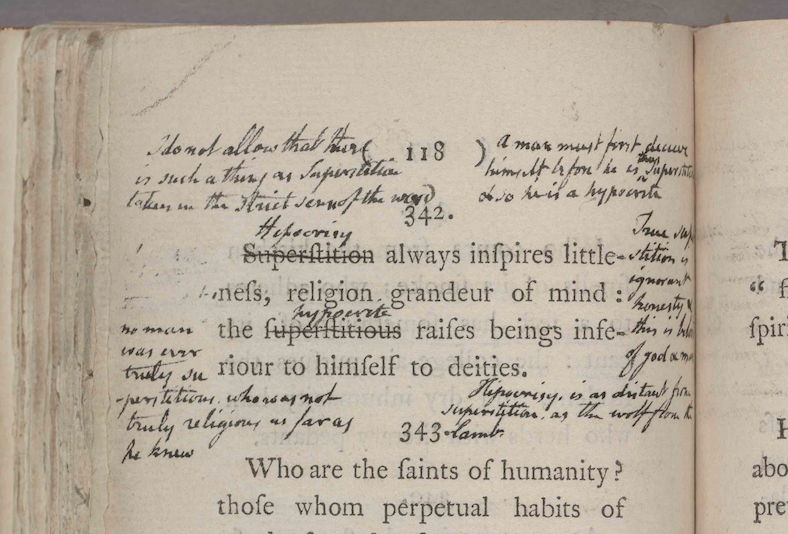 I do not allow that there
is such a thing as Superstition
taken in the Strict sense of the word
( 118 )
A man must first decieve
himself before he is thus Superstitious
& so he is a hypocrite
342.
Hipocrisy
Superſtition always inſpires little-
neſs, religion grandeur of mind :
hypocrite
the ſuperſtitious raiſes beings infe-
riour to himſelf to deities.
True sup
stition is
ignorant
honesty &
this is bel
of god & m
no man
was ever
truly su
-perstitious who was not
truly religious as far as
he knew
Hipocrisy. is as distant from
superstition. as the wolf from the
Lamb.
343.
Who are the ſaints of humanity?
thoſe whom perpetual habits of
T
“ fi
ſpiri
H
abo
pre